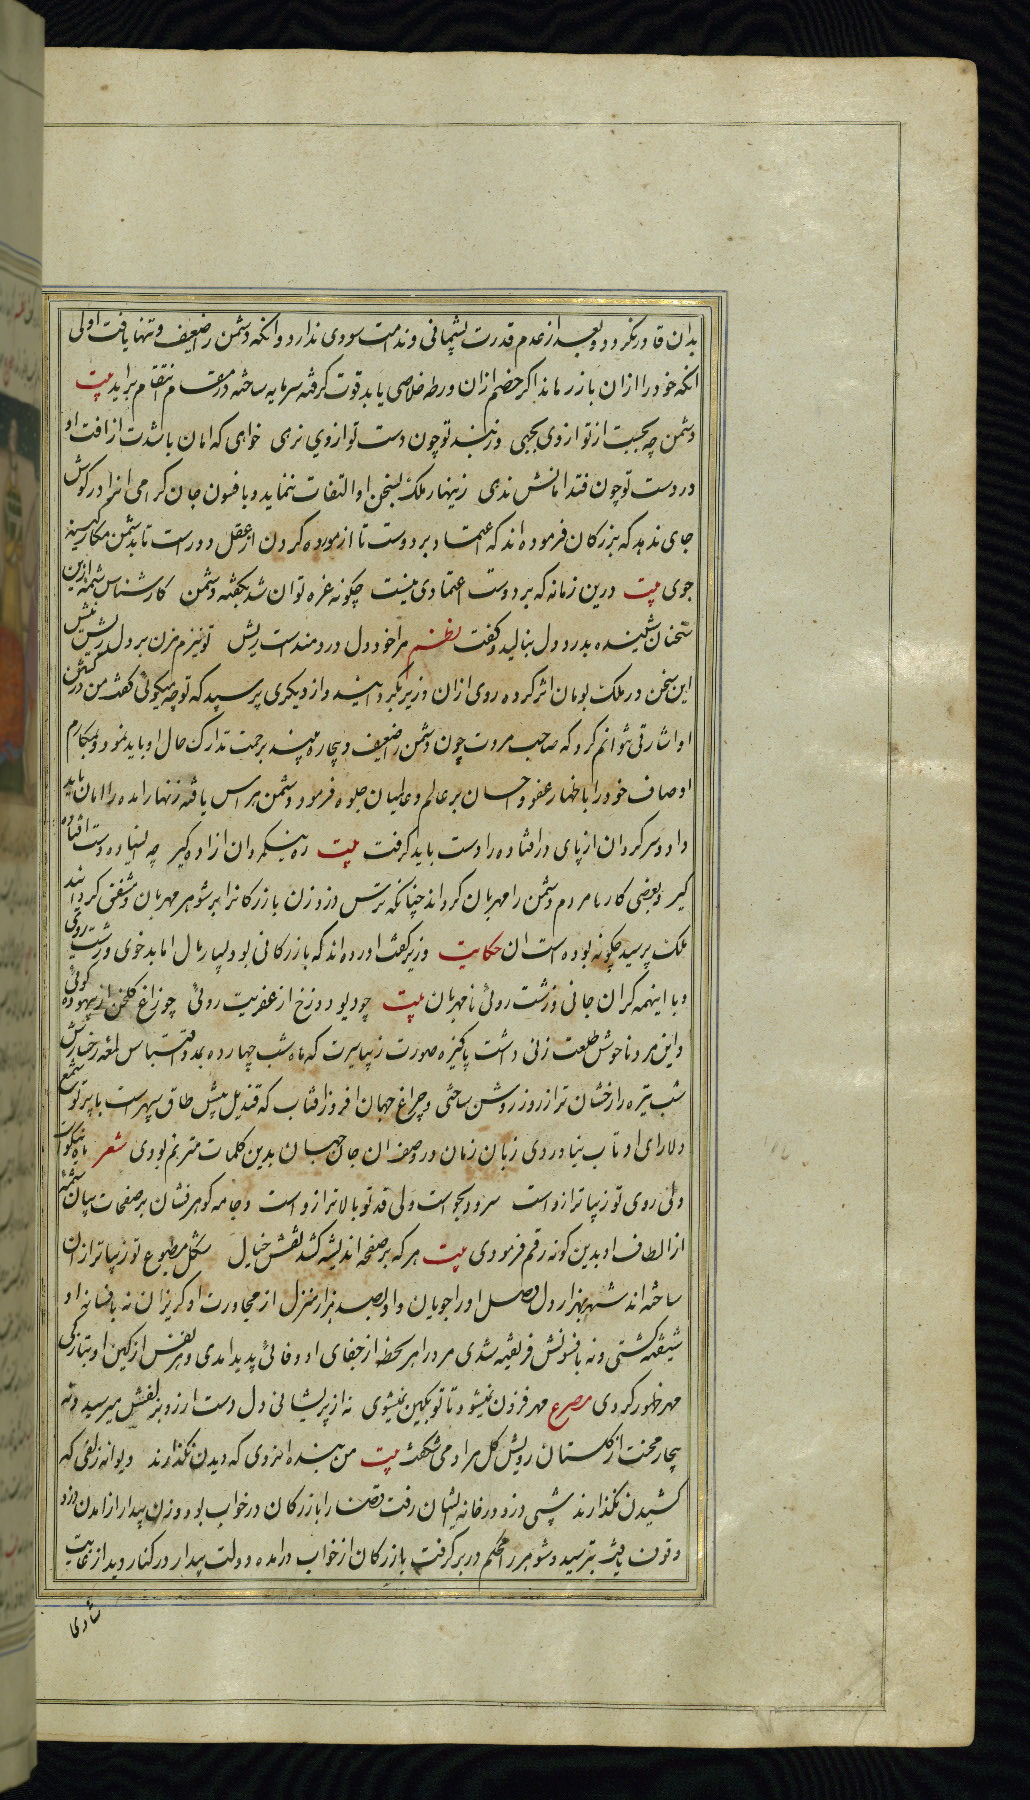 بدان قادر نگردد و بعد از عدم قدرت پشیمانی و ندامت سودی ندارد و انکه دشمن را ضعیف و تنها یافت اولی
انکه خود را ازان باز رهاند اکر خصم ازان ورطه خلاصی یابد قوت کرفته سرمایه ساخته در مقام انتقام براید بیت
دشمن چو بجست از تو از وی بجهی وز بند تو چون رست تو از وی نرهی خواهی که امان باشدت از افت او
در دست تو چون فتد امانش ندهی زینهار ملک بسخن او التفات ننماید و بافسون جان کرامی انرا در کوش
جای ندهد که بزرکان فرموده اند که اعتماد بر دوست نا ازموده کردن از عقل دور است تا بدشمن مکار کینه
جوی بیت درین زمانه که بر دوست اعتمادی نیست چکونه غره توان شد بکفته دشمن کارشناس شمه ازین
سخنان شنیده بدرد دل بنالید و کفت نظم مرا خود دل دردمند است ریش تو نیزم مزن بر دل ریش نیش
این سخن در ملک بومان اثر کرده روی ازان وزیر بکردانید و از دیکری پرسید که تو چه میکوئی کفت من در کشتن
او اشارتی نتوانم کرد که صاحب مروت چون دشمن را ضعیف و بیچاره بیند برحمت تدارک حال او باید نمود و مکارم
اوصاف خود را باظهار عفو و احسان بر عالم و عالمیان جلوه فرمود و دشمن هراس یافته زنهار امده را امان باید
داد و سرکردان از پای درافتاده را دست باید کرفت بیت ره نیکمردان ازاده کیر چو ایستاده دست افتاده
کیر و بعضی کارها مردم دشمن را مهربان کرداند چنانکه ترس دزد زن بازرکانرا بر شوهر مهربان و مشفق کردانید
ملک پرسید چکونه بوده است ان حکایت وزیر کفت اورده اند که بازرکانی بود بسیار مال اما بد خوی و زشت روی
و با اینهمه کران جانی و زشت روئی نا مهربان بیت چو دیو دوزخ از عفریت روئی چو زاغ کلخن از بیهوده کوئی
و این مرد ناخوش طلعت زنی داشت پاکیزه صورت زیبا سیرت که ماه شب چهارده بمدد اقتباس لمعه رخسارش
شب تیره را رخشان تر از روز روشن ساختی و چراغ جهان افروز افتاب که قندیل پیش طاق سپهرست با پرتو شمع
دلارای او تاب نیاوردی زبان زمان در وصف ان جان جهان بدین کلمات مترنم بودی شعر ماه نیکوست
ولی روی تو زیباتر ازوست سرو دلجوست ولی قد تو بالاتر ازوست و جامه کوهر فشان بر صفحات بیان شمه
از الطاف او بدین کونه رقم فرمودی بیت هر که بر صفحه اندیشه کشد نقش خیال شکل مطبوع تو زیباتر ازان
ساخته اند شوهر بهزار دل وصل او را جویان و او بصد هزار منزل از مجاورت او کریزان نه بافسانه او
شیفته کشتی و نه بافسونش فریفته شدی مرد را هر لحظه از جفای او وفائی پدید امدی و هر نفس از کین او بتازکی
مهر ظهور کردی مصرع مهر فزون میشود تا تو بکین میشوی نه از پریشانی دل دست ارزو بزلفش میرسید و نه
بیخار محنت از کلستان رویش کل مراد می شکفت بیت من بنده انروی که دیدن نکذارند دیوانه زلفی که
کشیدن نکذارند شبی دزد در خانه ایشان رفت قضا را بازرکان در خواب بود و زن بیدار از امدن دزد
وقوف یافته بترسید و شوهر را محکم در بر کرفت بازرکان از خواب درامده دولت بیدار در کنار دید از غایت
شادی